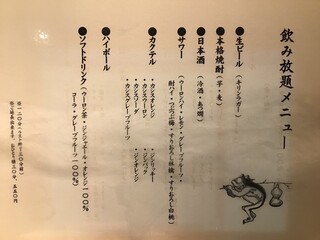 飲み放題メニュー
●生ビール(キリンラガー)
●本格焼酎(芋・麦)
●日本酒(冷酒・お燗)
●サワー(ウーロンハイ・レモン・グレープフルーツ・
酎ハイ・つぶつぶ梅・すりおろし林檎・すりおろし白桃)
●カクテル
・カシスオレンジ
・カシスウーロン
・カシスソーダ
・カシスグレープフルーツ
・ジンリッキー
・ジントニック
・ジンバック
・ジンオレンジ
●ハイボール
●ソフトドリンク(ウーロン茶・ジンジャエール・オレンジ100%
コーラ・グレープフルーツ100%)